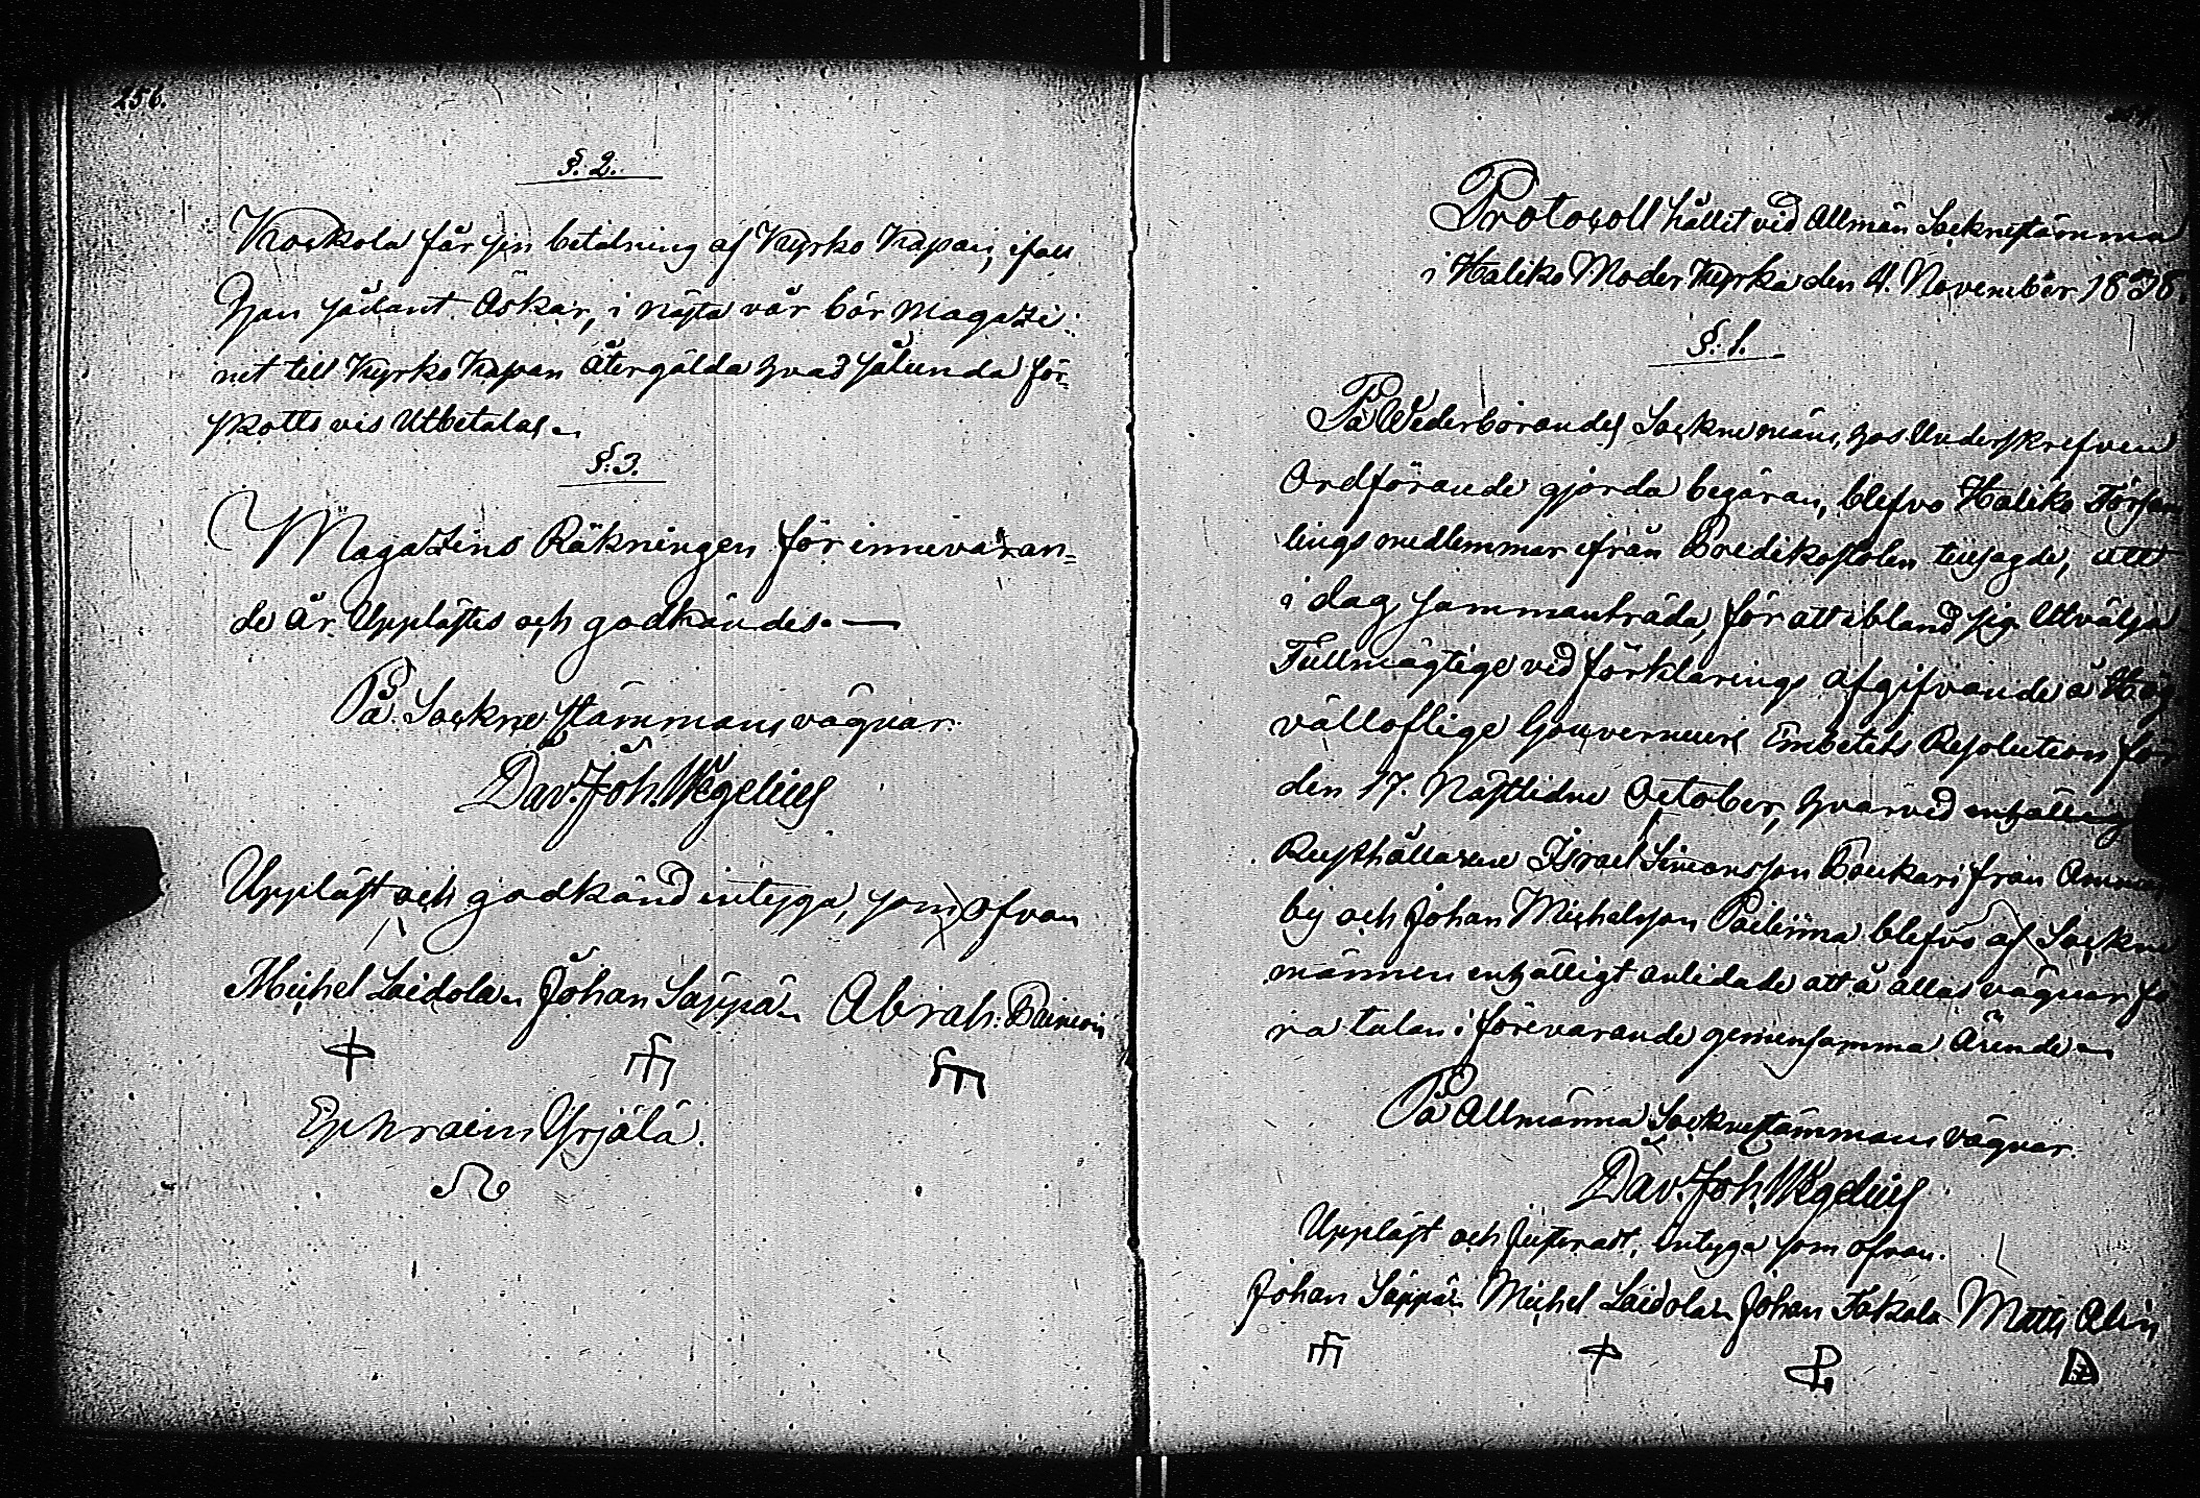 256.
§. 2.
Koskola får sin betalning af Kyrko Kassan, ifall
Han sådant Åskar, i nästa vår bör Magazi-
net till Kyrko Kassan återgälda hvad sålunda för-
skotts vis Utbetalas.
§. 3.
Magazins Räkningen för innevaran=
de år Upplästes och godkändes.—
På Sockne stämmans vägnar.
Dav. Joh. Wegelius
Uppläst och godkänd intyga, som ofvan
Michel Laidola, Johan Säppä, Abrah:
Ephraim Yrjälä.
Protocoll hållit vid Allmän Socknestämma
i Haliko Moder Kyrka den 4. November 1838.
§. 1.
På Wederbörandes Sockne mäns, hos Underskrefven
Ordförande gjorda begäran, blefvo Haliko Försam
lings medlemmar ifrån Predikostolen tillsagde, att
i dag sammanträda, för att ibland sig Utvälja
Fullmägtige vid förklarings afgifvande å Hög
välloflige Gouverneurs Embetets Resolution för
den 17. Nästlidne October, hvarvid enhälligt
Rusthållarene Israel Simonsson Boukari från
by och Johan Michelsson blefvo af Sockne
männen enhälligt anlidade att å allas vägnar fö
ra talan i förevarande gemensamma Ärende
På Allmänna Sockne stämmans vägnar.
Dav. Joh. Wegelius
Uppläst och Justerat, intyga som ofvan.
Johan Säppä, Michel Laidola, Johan Matts Alin